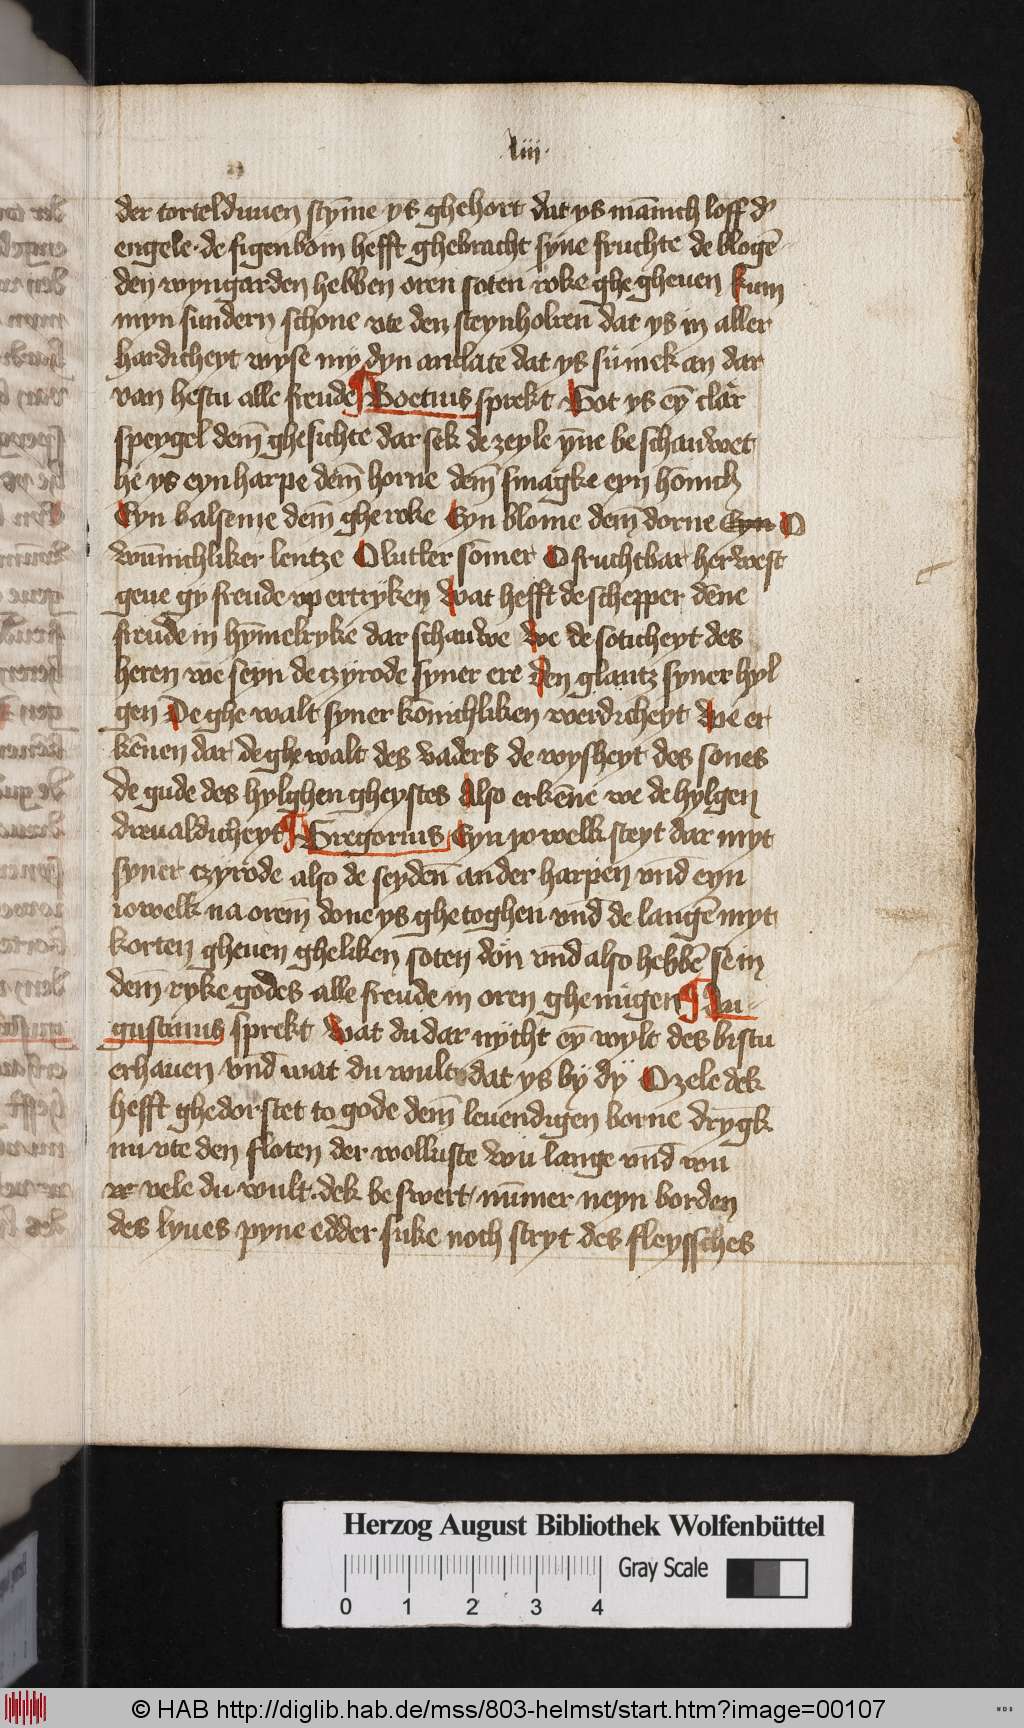 liii
der tortelduuen stȳme ys ghehort dat ys mānich loff d'
engele · de figenbom hefft ghebracht syne fruchte de blogē
den wyngarden hebben oren soten roke ghegheuen kum
myn sundern schone vte den steynholren dat ys in aller
hardicheyt wyse my dyn antlate dat ys su mek an dar
van hestu alle freude ¶ Boetius sprekt Got ys eȳ clar
speygel dem̄ ghesichte dar sek de zeyle ȳne beschauwet
he ys eyn harpe dem̄ horne dem̄ smagke eyn hōnich
Eyn balseme dem̄ gheroke Eyn blome dem̄ dorne Eyn O
wūnichliker lentze O lutter somer O fruchtbar herwest
geue gy freude vp ertryken wat hefft de schepper dēne
freude in hȳmelryke dar schauwe we de soticheyt des
heren we seyn de czyrode syner ere den glantz syner hyl
gen De ghewalt syner kōnichliken werdicheyt we er
kēnen dar de ghewalt des vaders de wysheyt des sones
de gude des hylghen gheystes Also erkēne we de hylgen
dreualdicheyt ¶ Gregorius Eyn yowelk steyt dar myt
syner czyrode also de seyden an der harpen vnd eyn
iowelk na orem̄ done ys ghetoghen vnd de langē myt
korten gheuen gheliken soten don vnd also hebbē se in
dem̄ ryke godes alle freude in oren ghenugen ¶ Au-
gustinus sprekt wat du dar nycht eȳ wylt des bistu
erhauen vnd wat du wult dat ys by dy O zele dek
hefft ghedorstet to gode dem̄ leuendigen borne drygk
nu vte den floten der wolluste wu lange vnd wu
vele du wult · dek beswert nūmer neyn borden
des lyues pyne edder suke noch stryt des fleyssches
Herzog August Bibliothek Wolfenbüttel
Gray Scale
0 1 2 3 4
© HAB http://diglib.hab.de/mss/803-helmst/start.htm?image=00107